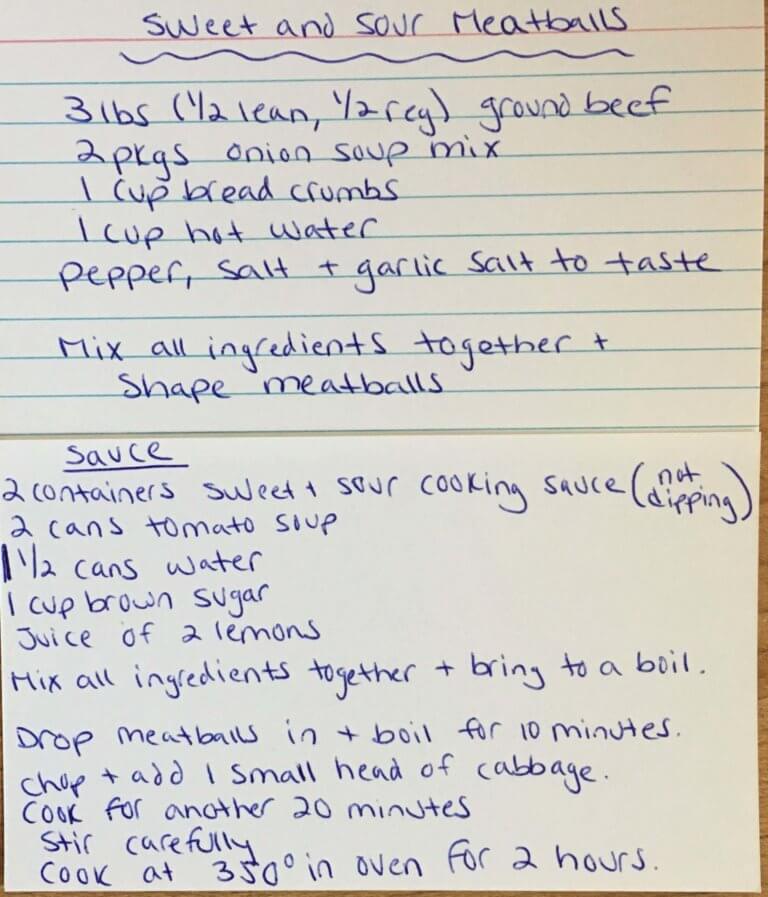 Sweet and Sour Meatballs
3 lbs (1/2 lean, 1/2 reg) ground beef
2 pkgs onion soup mix
1 cup bread crumbs
1 cup hot water
pepper, salt + garlic salt to taste
Mix all ingredients together +
shape meatballs
Sauce
2 containers sweet + sour cooking sauce (not dipping)
2 cans tomato soup
1 1/2 cans water
1 cup brown sugar
Juice of 2 lemons
Mix all ingredients together + bring to a boil.
Drop meatballs in + boil for 10 minutes.
Chop + add 1 small head of cabbage.
Cook for another 20 minutes
Stir carefully
Cook at 350° in oven for 2 hours.